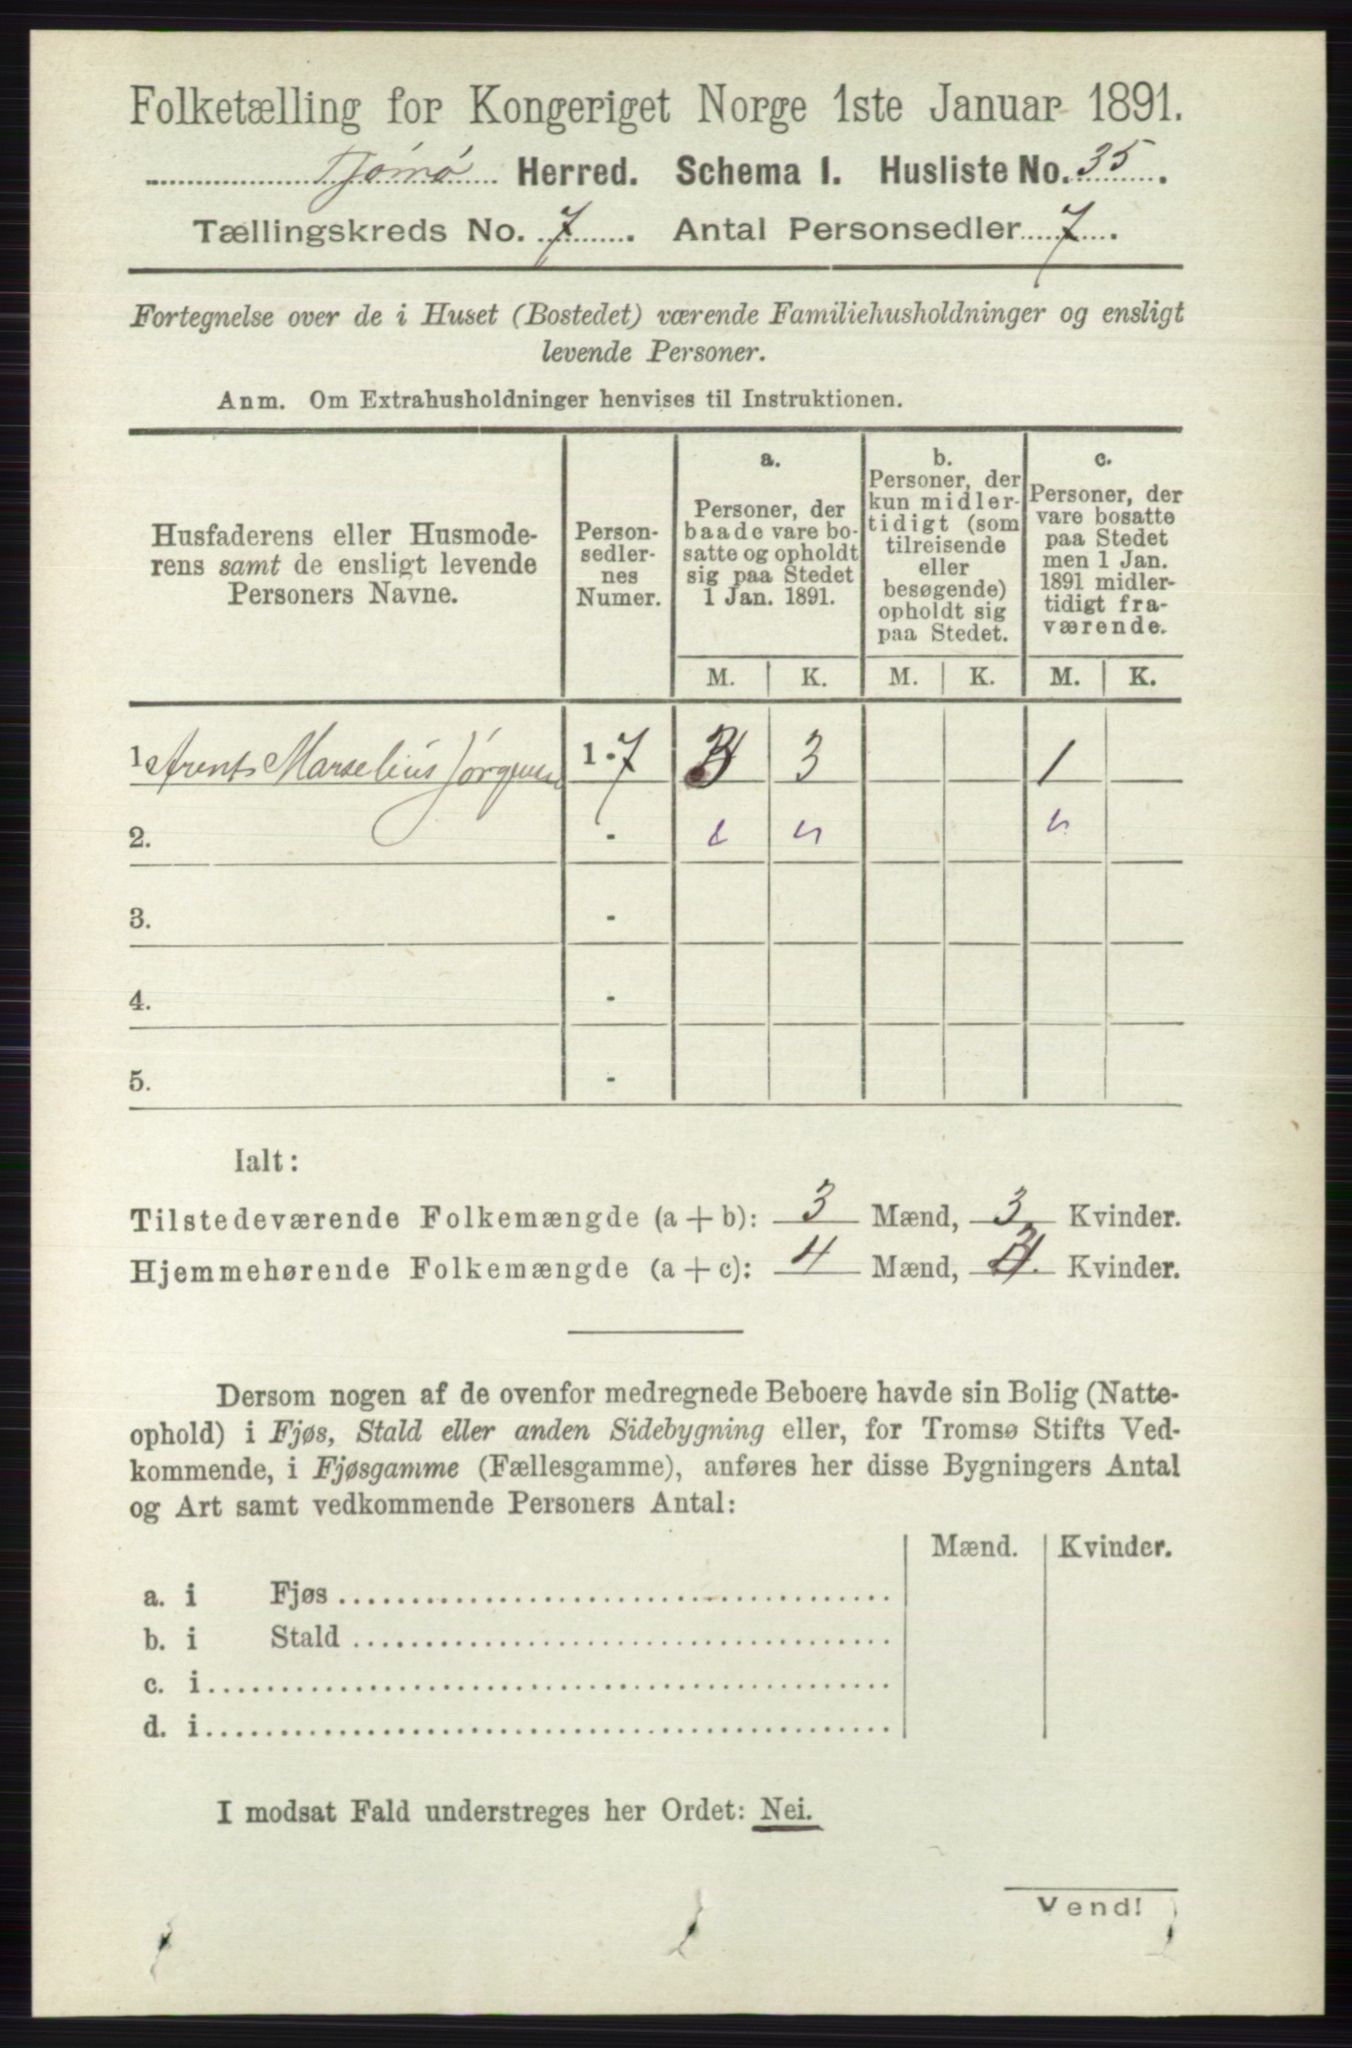 Folketælling for Kongeriget Norge 1ste Januar 1891.
Tjømø Herred. Schema 1. Husliste No. 35.
Tællingskreds No. 7. Antal Personsedler 7.
Fortegnelse over de i Huset (Bostedet) værende Familiehusholdninger og ensligt
levende Personer.
Anm. Om Extrahusholdninger henvises til Instruktionen.
Husfaderens eller Husmode-
rens samt de ensligt levende
Personers Navne.
Person-
sedler-
nes
Numer.
a.
Personer, der
baade vare bo-
satte og opholdt
sig paa Stedet
1 Jan. 1891.
b.
Personer, der
kun midler-
tidigt (som
tilreisende
eller
besøgende)
opholdt sig
paa Stedet.
c.
Personer, der
vare bosatte
paa Stedet
men 1 Jan.
1891 midler-
tidigt fra-
værende.
M. K. M. K. M. K.
1 Arents Marselius Jörgensen 1-7 3 3 1
2. -
3. -
4. -
5. -
Ialt:
Tilstedeværende Folkemængde (a + b): 3 Mænd, 3 Kvinder.
Hjemmehørende Folkemængde (a + c): 4 Mænd, 3. Kvinder.
Dersom nogen af de ovenfor medregnede Beboere havde sin Bolig (Natte-
ophold) i Fjøs, Stald eller anden Sidebygning eller, for Tromsø Stifts Ved-
kommende, i Fjøsgamme (Fællesgamme), anføres her disse Bygningers Antal
og Art samt vedkommende Personers Antal:
Mænd. Kvinder.
a. i Fjøs
b. i Stald
c. i
d. i
I modsat Fald understreges her Ordet: Nei.
Vend!